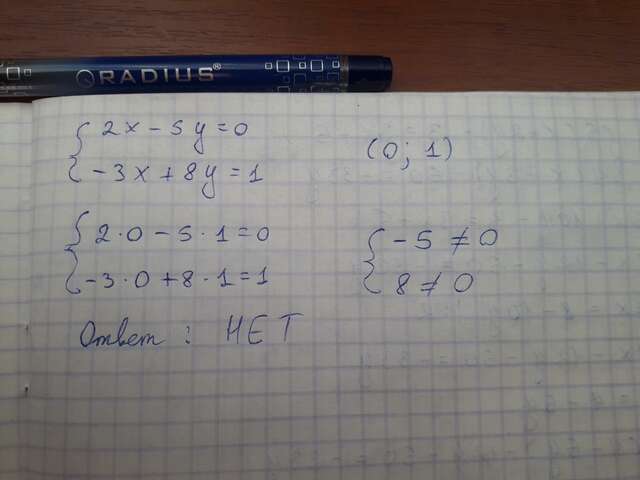 RADIUS®
2x - 5y = 0
-3x + 8y = 1
(0; 1)
2·0 - 5·1 = 0
-3·0 + 8·1 = 1
-5 ≠ 0
8 ≠ 0
Ответ: НЕТ